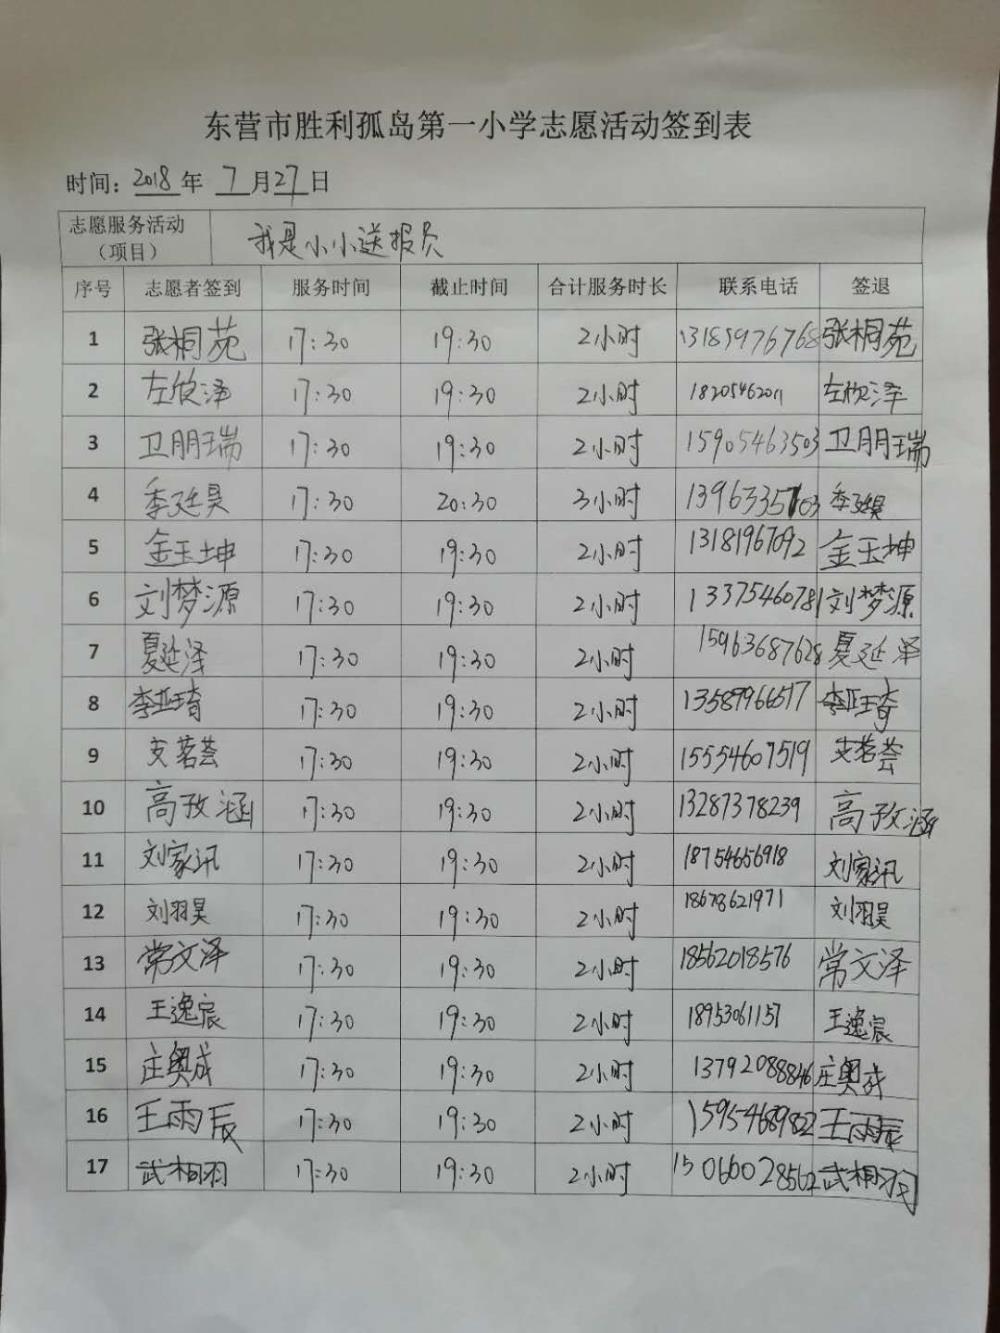 东营市胜利孤岛第一小学志愿活动签到表
时间：2018年 7月27日
志愿服务活动（项目） 我是小小送报员
序号 志愿者签到 服务时间 截止时间 合计服务时长 联系电话 签退
1 张桐苑 17:30 19:30 2小时 13185976768 张桐苑
2 左欣泽 17:30 19:30 2小时 18205462011 左欣泽
3 卫朋瑞 17:30 19:30 2小时 15905463503 卫朋瑞
4 季延昊 17:30 20:30 3小时 季延昊
5 金玉坤 17:30 19:30 2小时 13181967092 金玉坤
6 刘梦源 17:30 19:30 2小时 13375460781 刘梦源
7 夏延泽 17:30 19:30 2小时 15963687628 夏延泽
8 李亚琦 17:30 19:30 2小时 13589966517 李亚琦
9 支茗荟 17:30 19:30 2小时 15554607519 支茗荟
10 高孜涵 17:30 19:30 2小时 13287378239 高孜涵
11 刘家讯 17:30 19:30 2小时 18754656918 刘家讯
12 刘羽昊 17:30 19:30 2小时 18678621971 刘羽昊
13 常文泽 17:30 19:30 2小时 18562018576 常文泽
14 王逸宸 17:30 19:30 2小时 18953061157 王逸宸
15 庄奥成 17:30 19:30 2小时 13792088846 庄奥成
16 王雨辰 17:30 19:30 2小时 王雨辰
17 武桐羽 17:30 19:30 2小时 15066028562 武桐羽